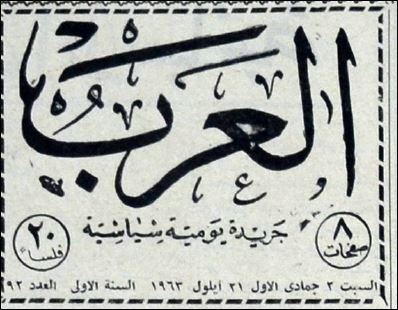 العرب
جريدة يومية سياسية
٨ صفحات
٢٠ فلسا
السبت ٢ جمادى الاول ٢١ أيلول ١٩٦٣ السنة الاولى العدد ٩٢